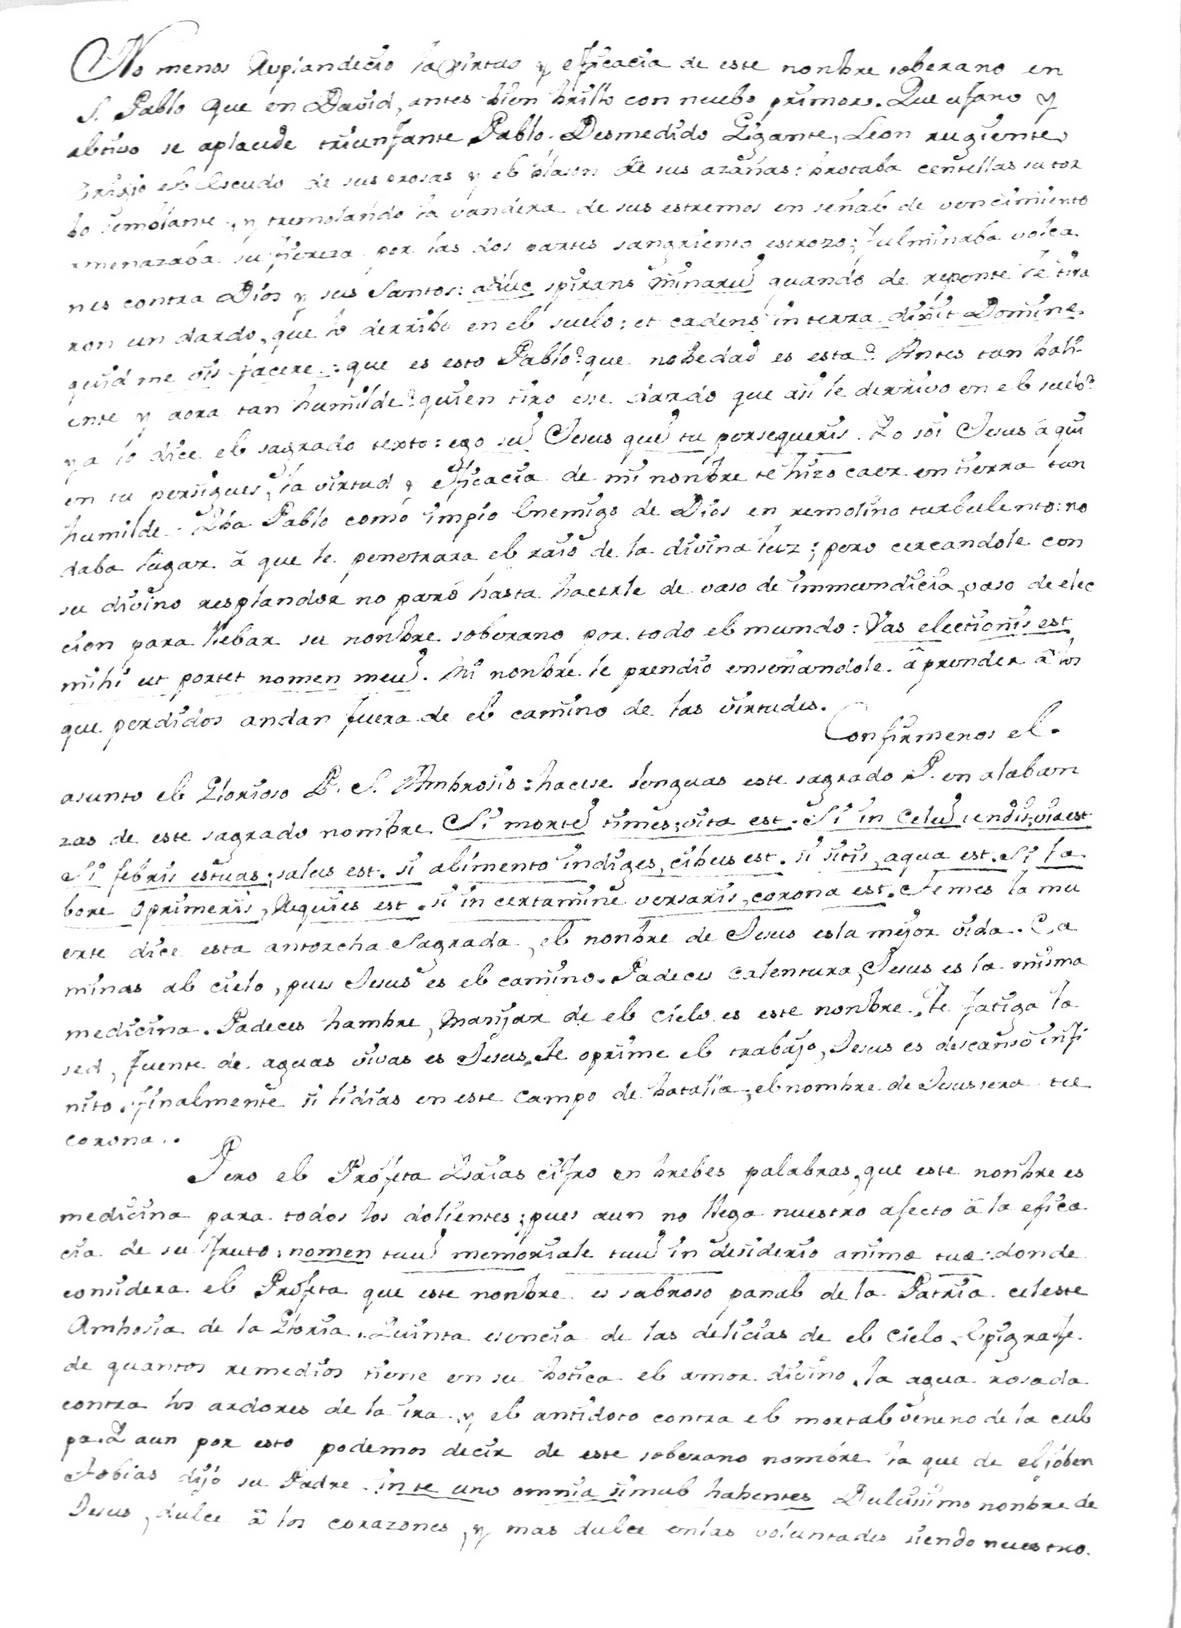 No menos Resplandecio la virtud y eficacia de este nonbre soberano en
S. Pablo que en David, antes bien brillo con nuebo primor. Que ufano y
altivo se aplaude triunfante Pablo. Desmedido Gigante, Leon rugiente,
el Escudo de sus cosas y el blason de sus azañas: brotaba centellas su tor
bo semblante, y tremolando la vandera de sus estremos en señal de vencimiento
amenazaba su fiereza por las dos partes sangriento estrozo; fulminaba volca
nes contra Dios y sus Santos: aduc spirans minarũ quando de repente le tira
ron un dardo, que lo derribo en el suelo: et cadens in terra dixit Domine
quid me vis facere: que es esto Pablo? que nobedad es esta? Antes tan bali
ente y aora tan humilde? quien tiro ese dardo que asi te derrivo en el suelo?
ya lo dice el sagrado texto: ego sũ Jesus quẽ tu persequeris. Yo soi Jesus a qui
en tu persigues, la virtud y eficacia de mi nonbre te hizo caer en tierra tan
humilde. Iba Pablo como impio Enemigo de Dios en remolino turbulento: no
daba lugar a que le penetrara el raio de la divina luz; pero cercandole con
su divino resplandor no paró hasta hacerle de vaso de immundicia, vaso de elec
cion para llebar su nonbre soberano por todo el mundo: Vas electionis est
mihi ut portet nomen meũ. Mi nonbre le prendio enseñandole a prender a los
que perdidos andan fuera de el camino de las virtudes.
Confirmenos el
asunto el Glorioso P. S. Ambrosio: hacese lenguas este sagrado P. en alaban
zas de este sagrado nombre. Si mortẽ times, vita est. Si in Celũ tendis, via est
Si febris estuas, salus est. si alimento indiges, cibus est. si sitis, aqua est. Si la
bore oprimeris, Requies est. si in certamine versaris, corona est. Temes la mu
erte dice esta antorcha Sagrada, el nonbre de Jesus es la mejor vida. Ca
minas al cielo, pues Jesus es el camino. Padeces Calentura, Jesus es la misma
medicina. Padeces hambre, Manjar de el cielo es este nonbre. Te fatiga la
sed, fuente de aguas vivas es Jesus. Te oprime el trabajo, Jesus es descanso infi
nito. finalmente si lidias en este campo de batalla, el nombre de Jesus sera tu
corona..
Pero el Profeta Isaias cifro en brebes palabras, que este nonbre es
medicina para todos los dolientes; pues aun no llega nuestro afecto a la efica
cia de su fruto: nomen tuũ memoriale tuũ in desiderio anime tue: donde
considera el Profeta que este nonbre es sabroso panal de la Patria celeste
Ambrosia de la Gloria. Quinta esencia de las delicias de el Cielo. Epigrafe
de quantos remedios tiene en su botica el amor divino, la agua rosada
contra los ardores de la ira, y el antidoto contra el mortal veneno de la cul
pa. I aun por esto podemos decir de este soberano nombre la que de el joben
Tobias dijo su Padre. in te uno omnia simul habentes Dulcisimo nonbre de
Jesus, dulce a los corazones, y mas dulce en las voluntades siendo nuestro.